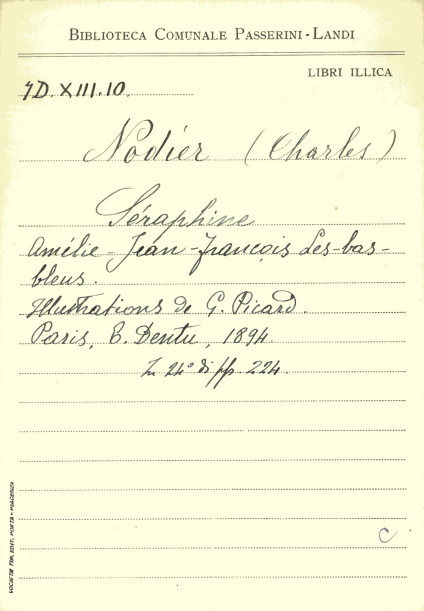 BIBLIOTECA COMUNALE PASSERINI-LANDI
LIBRI ILLICA
7D.XIII.10.
Nodier (Charles)
Séraphine
Amélie - Jean-François Les-bas-
bleus.
Illustrations de G. Picard.
Paris, E. Dentu, 1894.
In 24° di pp. 224.
C
SOCIETÀ TIP. EDIT. PORTA - PIACENZA